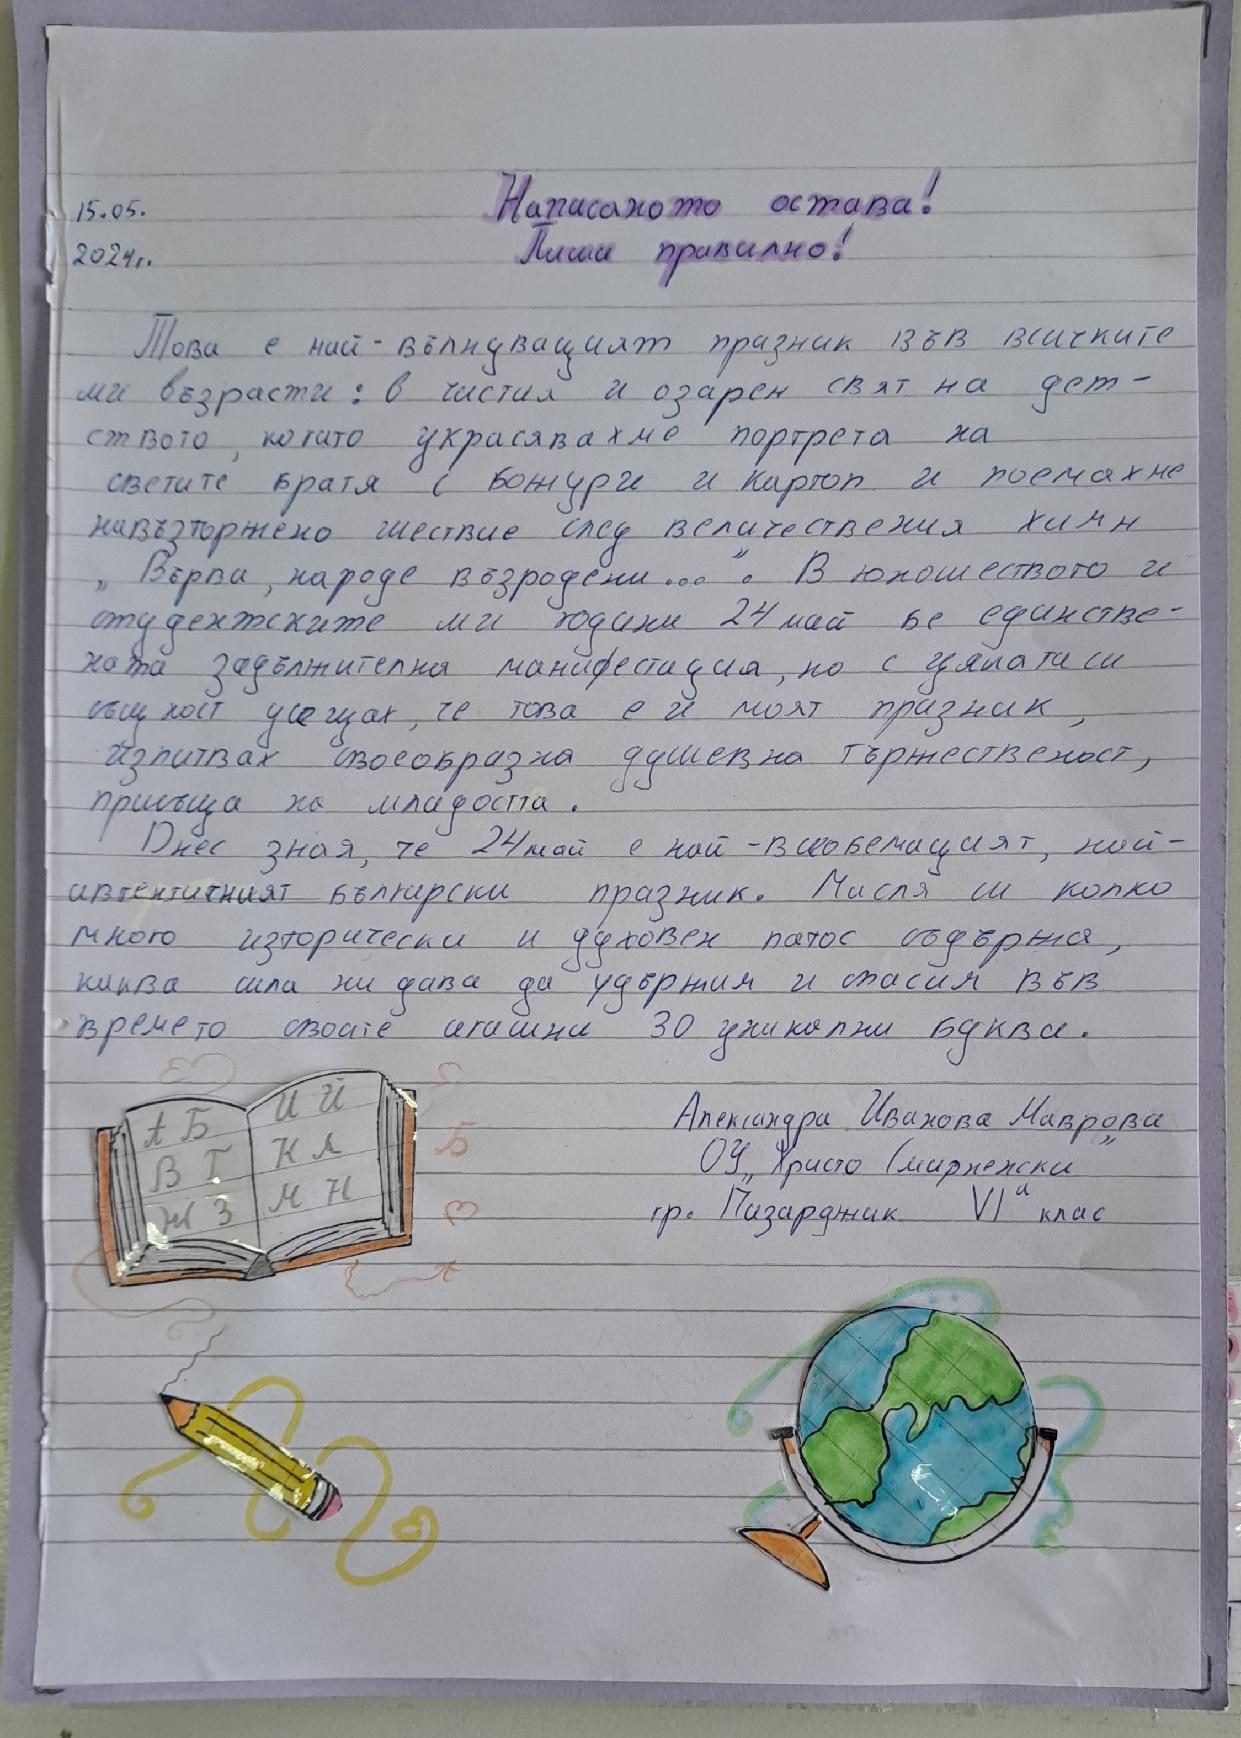 15.05.
2024г.
Написаното остава!
Пиши правилно!
Това е най-вълнуващият празник във всичките
ми възрасти: в чистия и озарен свят на дет-
ството, когато украсявахме портрета на
светите братя с божури и картоп и поемахме
навъзторжено шествие след величествения химн
„Върви, народе възродени...". В юношеството и
студентските ми години 24 май бе единстве-
ната задължителна манифестация, но с цялата си
същност усещах, че това е и моят празник,
изпитвах своеобразна душевна тържественост,
присъща на младостта.
Днес зная, че 24 май е най-всеобемащият, най-
автентичният български празник. Мисля си колко
много изторически и духовен патос съдържа,
каква сила ни дава да удържим и спасим във
времето своите агашни 30 уникални букви.
А Б
В Г
Ж З
И Й
К Л
М Н
Б
В
Александра Иванова Маврова
ОУ „Христо Смирненски"
гр. Пазарджик VIа клас